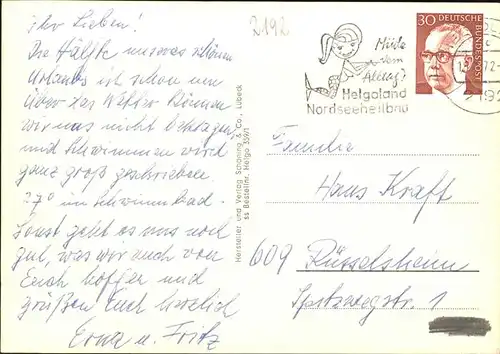 Ihr Lieben!
Die Hälfte unseres schönen
Urlaubs ist schon um
über das Wetter können
wir uns nicht beklagen,
und Schwimmen wird
ganz groß geschrieben
27° im Schwimmbad.
Sonst geht es uns noch
gut, was wir auch von
Euch hoffen und
grüßen Euch herzlich
Erna u. Fritz
2192
Hersteller und Verlag Schöning & Co., Lübeck
ss Bestellnr. Helgo 359/1
Müde
vom
Alltag?
Helgoland
Nordseeheilbad
30 DEUTSCHE
BUNDESPOST
Familie
Hans Kraft
609 Rüsselsheim
Spitzwegstr. 1